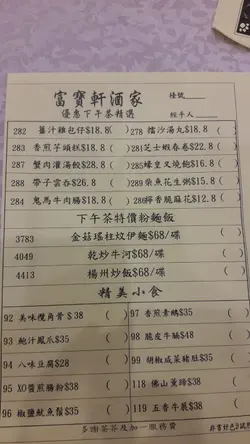 富寶軒酒家
優惠下午茶精選
檯號
經手人
282 薑汁雞包仔$18.8 ( ) 278 擂沙湯丸$18.8 ( )
283 香煎芋頭糕$18.8 ( ) 281 芝士蝦春卷$22.8 ( )
287 蟹肉灌湯餃$28.8 ( ) 285 蜂巢叉燒鮑$16.8 ( )
288 帶子雲吞$26.8 ( ) 289 柴魚花生粥$15.8 ( )
284 鬼馬牛肉腸$18.8 ( ) 286 椒香脆麻花$12.8 ( )
下午茶特價粉麵飯
3783 金菇瑤柱炆伊麵$68/碟 ( )
4049 乾炒牛河$68/碟 ( )
4413 楊州炒飯$68/碟 ( )
精美小食
92 美味欖角骨$38 ( ) 97 香煎素鵝$35 ( )
93 鮑汁鳳爪$35 ( ) 98 脆皮牛腩$48 ( )
94 八味豆腐$28 ( ) 99 胡椒咸菜豬肚$35 ( )
95 XO醬煎腸粉$38 ( ) 118 佛山薰蹄$38 ( )
96 椒鹽魷魚鬚$50 ( ) 119 五香牛展$38 ( )
多謝茶芥及加一服務費